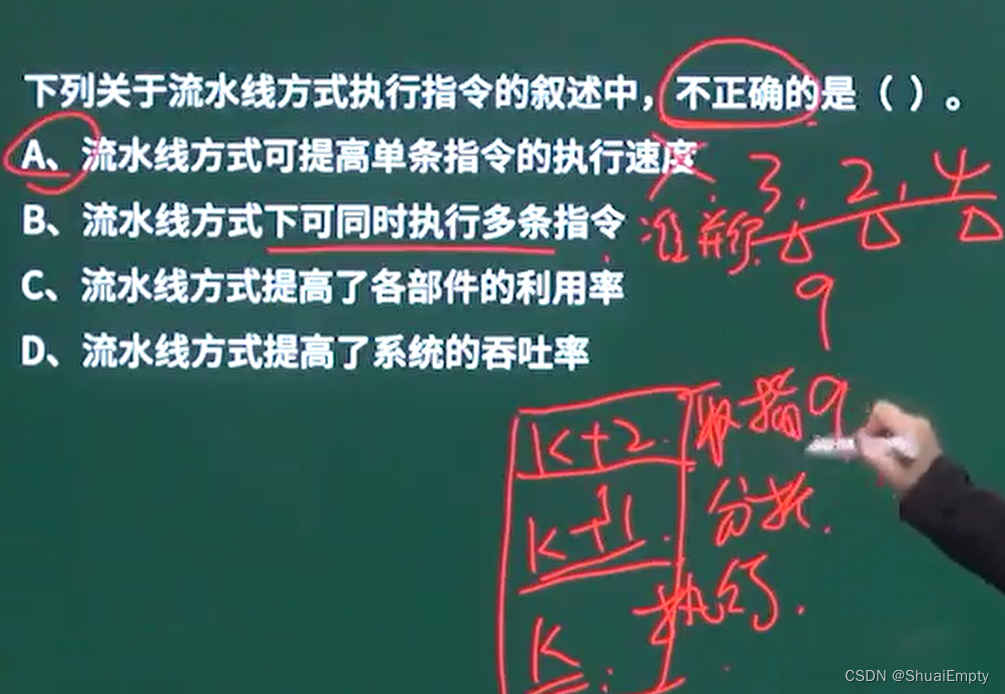 下列关于流水线方式执行指令的叙述中，不正确的是（ ）。
A、流水线方式可提高单条指令的执行速度
B、流水线方式下可同时执行多条指令
C、流水线方式提高了各部件的利用率
D、流水线方式提高了系统的吞吐率
3, 2, 4
准并行
9
K+2 取指 9
K+1 分析
K 执行
CSDN @ShuaiEmpty